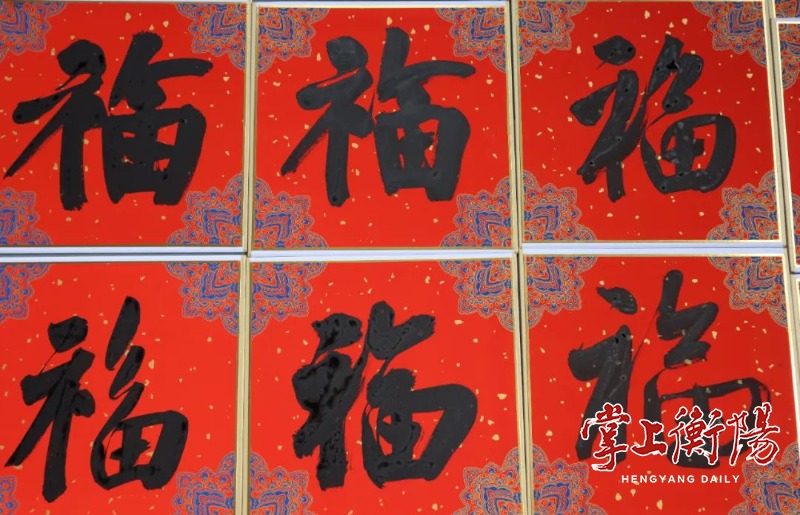 福 福 福
福 福 福
掌上衡陽
HENGYANG DAILY